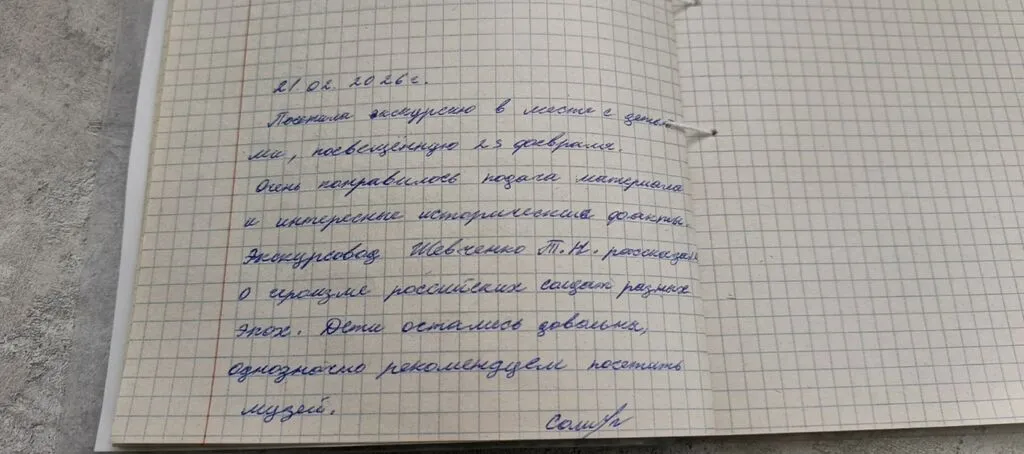 21.02.2026 г.
Посетила экскурсию в месте с детьт
ми, посвещённую 23 февраля.
Очень понравилось подача материала
и интересные исторические факты.
Экскурсовод Шевченко Т.Н. рассказала
о героизме российских солдат разных
эпох. Дети остались довольны,
однозначно рекомендуем посетить
музей.